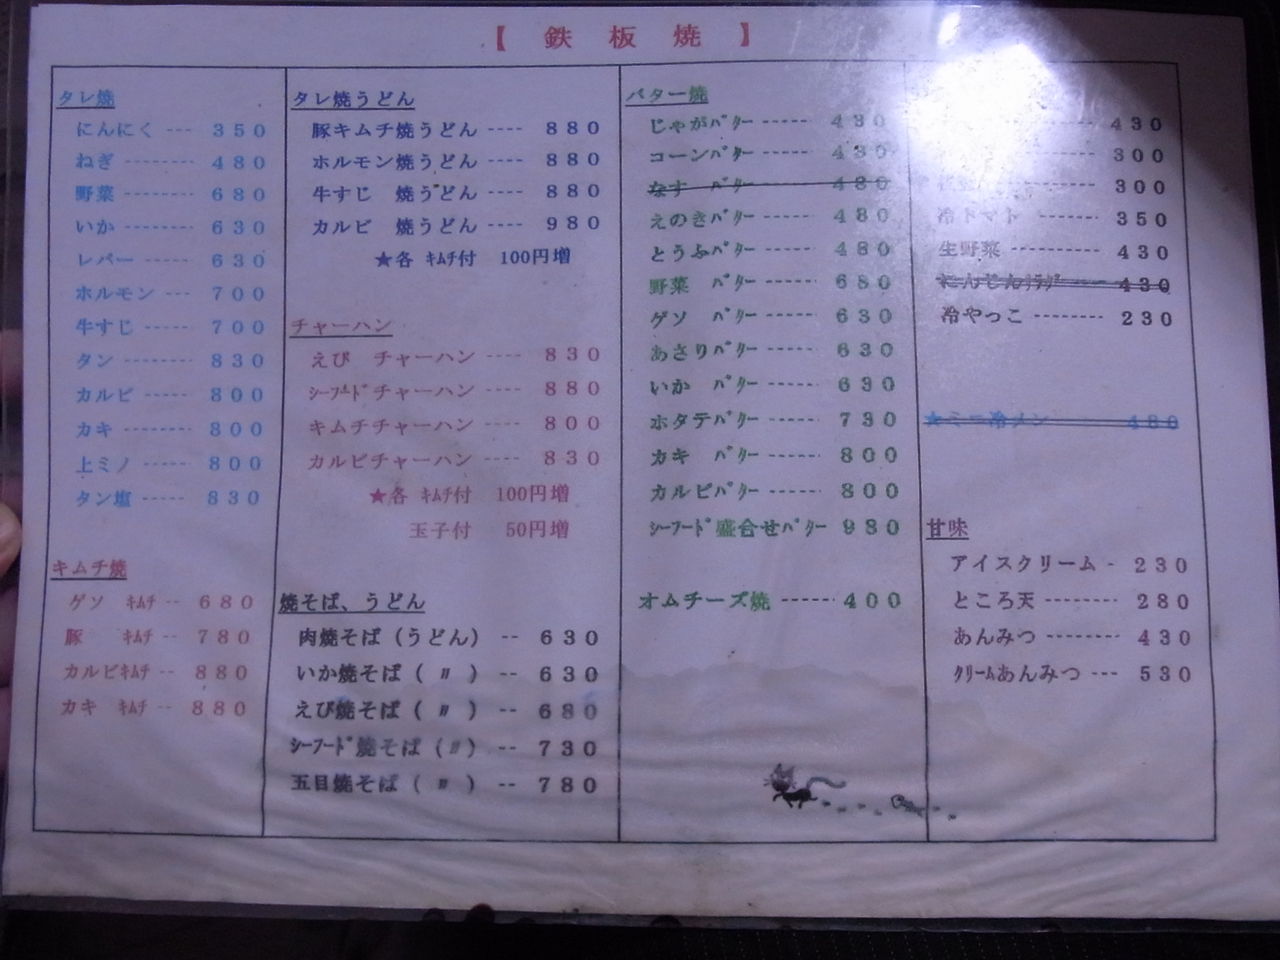 【 鉄 板 焼 】
タレ焼
にんにく --- 350
ねぎ -------- 480
野菜 -------- 680
いか -------- 630
レバー ------ 630
ホルモン --- 700
牛すじ ------ 700
タン -------- 830
カルビ ------ 800
カキ -------- 800
上ミノ ------ 800
タン塩 ------ 830
キムチ焼
ゲソ ｷﾑﾁ -- 680
豚 ｷﾑﾁ -- 780
カルビｷﾑﾁ -- 880
カキ ｷﾑﾁ -- 880
タレ焼うどん
豚キムチ焼うどん ---- 880
ホルモン焼うどん ---- 880
牛すじ 焼うどん ---- 880
カルビ 焼うどん ---- 980
★各 ｷﾑﾁ付 100円増
チャーハン
えび チャーハン ---- 830
ｼｰﾌｰﾄﾞチャーハン ---- 880
キムチチャーハン ---- 800
カルビチャーハン ---- 830
★各 ｷﾑﾁ付 100円増
玉子付 50円増
焼そば、うどん
肉焼そば（うどん） -- 630
いか焼そば（ 〃 ） -- 630
えび焼そば（ 〃 ） -- 680
ｼｰﾌｰﾄﾞ焼そば（〃） -- 730
五目焼そば（ 〃 ） -- 780
バター焼
じゃがﾊﾞﾀｰ ------ 430
コーンﾊﾞﾀｰ ------ 430
なす ﾊﾞﾀｰ ------ 480
えのきﾊﾞﾀｰ ------ 480
とうふﾊﾞﾀｰ ------ 480
野菜 ﾊﾞﾀｰ ------ 680
ゲソ ﾊﾞﾀｰ ------ 630
あさりﾊﾞﾀｰ ------ 630
いか ﾊﾞﾀｰ ------ 630
ホタテﾊﾞﾀｰ ------ 730
カキ ﾊﾞﾀｰ ------ 800
カルビﾊﾞﾀｰ ------ 800
ｼｰﾌｰﾄﾞ盛合せﾊﾞﾀｰ 980
オムチーズ焼 ------ 400
430
300
300
冷トマト ------ 350
生野菜 ---------- 430
にんじんｻﾗﾀﾞ ---- 430
冷やっこ -------- 230
★ミニ冷メン ------ 480
甘味
アイスクリーム - 230
ところ天 -------- 280
あんみつ -------- 430
ｸﾘｰﾑあんみつ --- 530